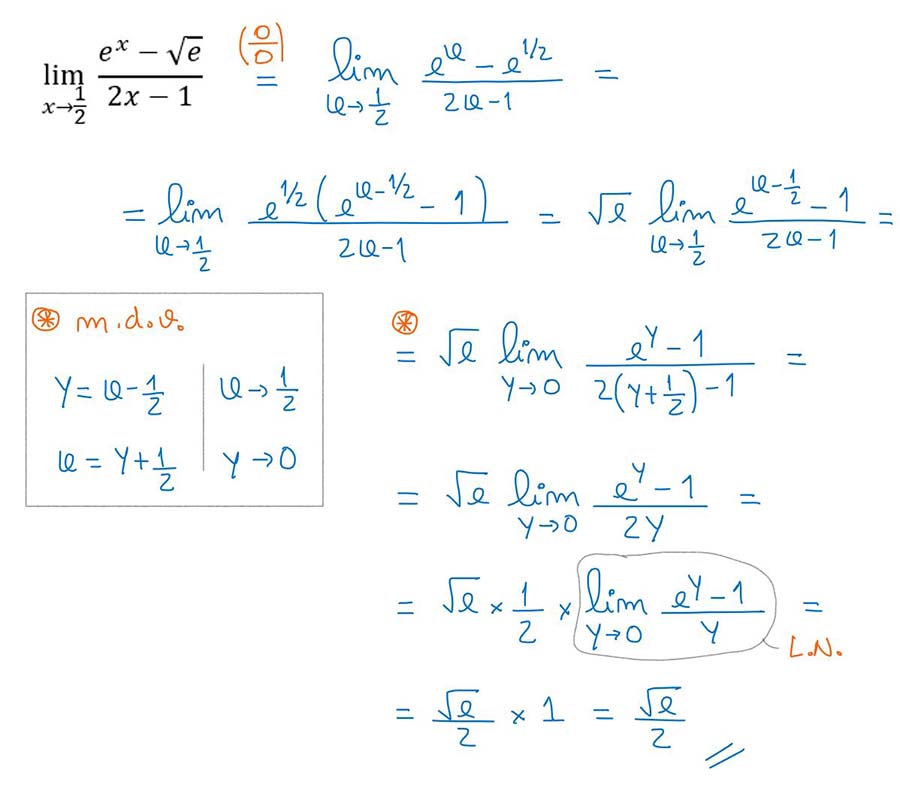 lim x→1/2 (e^x − √e)/(2x − 1) (0/0) = lim x→1/2 (e^x − e^(1/2))/(2x−1) =
= lim x→1/2 (e^(1/2)(e^(x−1/2) − 1))/(2x−1) = √e lim x→1/2 (e^(x−1/2) − 1)/(2x−1) =
⊛ m.d.v.
y = x−1/2 | x→1/2
x = y+1/2 | y→0
⊛
= √e lim y→0 (e^y − 1)/(2(y+1/2)−1) =
= √e lim y→0 (e^y − 1)/(2y) =
= √e × 1/2 × lim y→0 (e^y − 1)/y =
L.N.
= √e/2 × 1 = √e/2 //